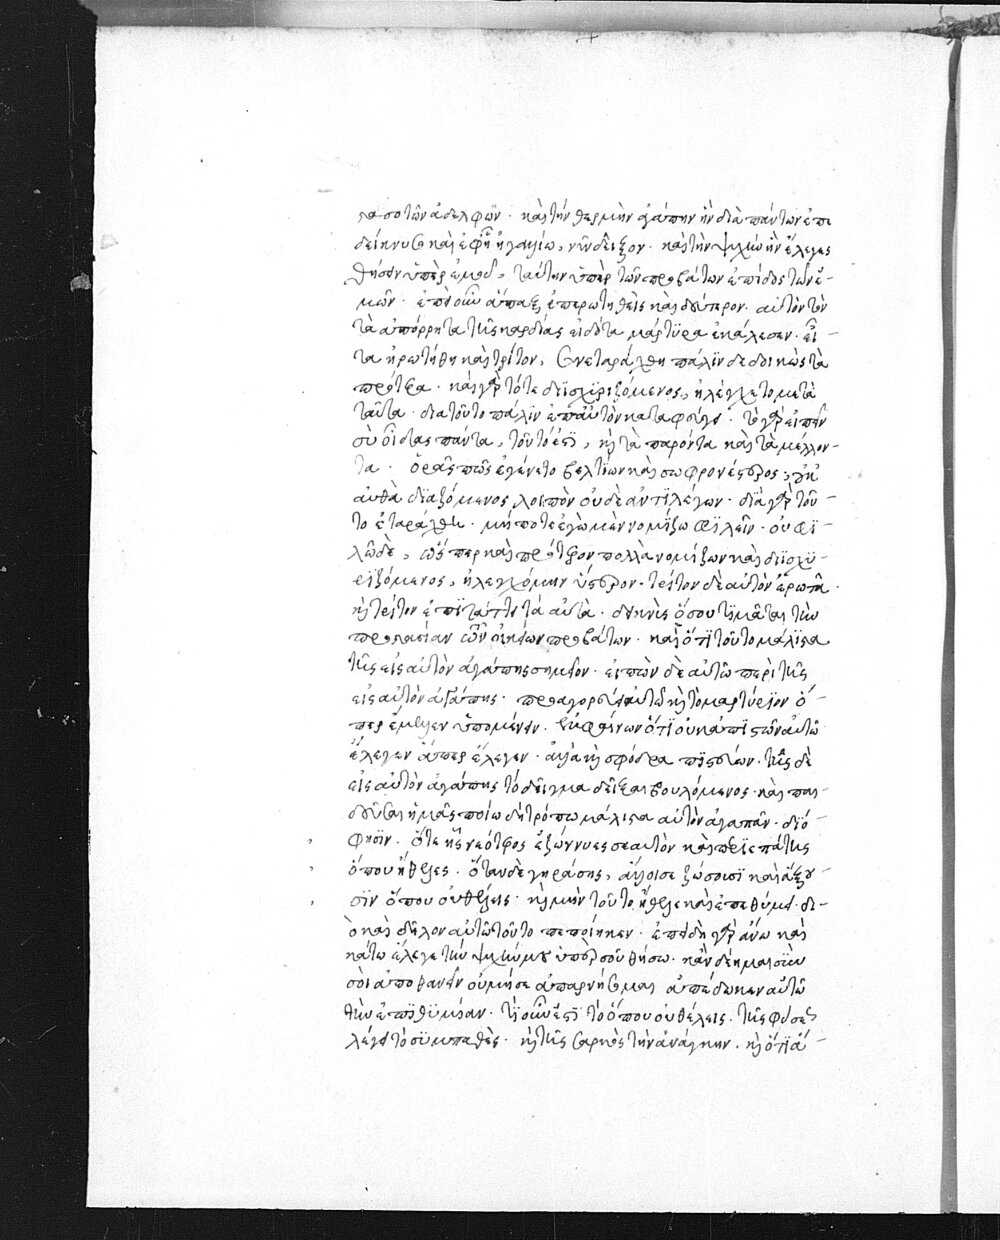 στασο τῶν ἀδελφῶν · καὶ τὴν θερμὴν ἀγάπην ἣν διὰ πάντων ἐπε
δείκνυσο καὶ ἐφ' ᾗ ἠγαλλίω, νῦν δεῖξον · καὶ τὴν ψυχὴν ἣν ἔλεγες
θήσειν ὑπὲρ ἐμοῦ, ταύτην ὑπὲρ τῶν προβάτων ἐπίδος τῶν ἐ-
μῶν · ἐπεὶ οὖν ἅπαξ ἐπερωτηθεὶς καὶ δεύτερον · αὐτὸν τὸν
τὰ ἀπόρρητα τῆς καρδίας εἰδότα μάρτυρα ἐκάλεσεν · εἶ-
τα ἠρωτήθη καὶ τρίτον, συνεταράχθη πάλιν δεδοικὼς τὰ
πρότερα · καὶ γὰρ τότε διϊσχυριζόμενος, ἠλέγχετο μετὰ
ταῦτα · διὰ τοῦτο πάλιν ἐπ' αὐτὸν καταφεύγει · τὸ γὰρ εἰπεῖν
σὺ οἶδας πάντα, τουτέστι, καὶ τὰ παρόντα καὶ τὰ μέλλον-
τα · ὁρᾷς πῶς ἐγένετο βελτίων καὶ σωφρονέστερος; οὐκ
αὐθαδιαζόμενος λοιπὸν οὐδὲ ἀντιλέγων · διὰ γὰρ τοῦ-
το ἐταράχθη · μήποτε ἐγὼ μὲν νομίζω φιλεῖν · οὐ φι-
λῶ δὲ, ὥσπερ καὶ πρότερον πολλὰ νομίζων καὶ διϊσχυ-
ριζόμενος, ἠλεγχόμην ὕστερον · τρίτον δὲ αὐτὸν ἐρωτᾷ ·
καὶ τρίτον ἐπιτάττει τὰ αὐτὰ · δεικνὺς ὅσου τιμᾶται τὴν
προστασίαν τῶν οἰκείων προβάτων · καὶ ὅτι τοῦτο μάλιστα
τῆς εἰς αὐτὸν ἀγάπης σημεῖον · εἰπὼν δὲ αὐτῷ περὶ τῆς
εἰς αὐτὸν ἀγάπης · προαγορεύει αὐτῷ καὶ τὸ μαρτύριον ὅ-
περ ἔμελλεν ὑπομένειν · ἐμφαίνων ὅτι οὐκ ἀπιστῶν αὐτῷ
ἔλεγεν ἅπερ ἔλεγεν · ἀλλὰ καὶ σφόδρα πιστεύων · τῆς δὲ
εἰς αὐτὸν ἀγάπης τὸ δεῖγμα δεῖξαι βουλόμενος · καὶ παι-
δεῦσαι ἡμᾶς ποίῳ δὴ τρόπῳ μάλιστα αὐτὸν ἀγαπᾶν · διό
φησιν · ὅτε ἦς νεώτερος ἐζώννυες σεαυτὸν καὶ περιεπάτεις
ὅπου ἤθελες · ὅταν δὲ γηράσῃς, ἄλλοι σε ζώσουσι καὶ ἄξου-
σιν ὅπου οὐ θέλεις · καὶ μὴν τοῦτο ἤθελε καὶ ἐπεθύμει · δι-
ὸ καὶ δῆλον αὐτῷ τοῦτο πεποίηκεν · ἐπειδὴ γὰρ ἄνω καὶ
κάτω ἔλεγε τὴν ψυχήν μου ὑπὲρ σοῦ θήσω · κἂν δέῃ με σὺν
σοὶ ἀποθανεῖν οὐ μή σε ἀπαρνήσομαι ἀπέδωκεν αὐτῷ
τὴν ἐπιθυμίαν · τί οὖν ἐστι τὸ ὅπου οὐ θέλεις · τῆς φύσεως
λέγει τὸ συμπαθὲς · καὶ τῆς σαρκὸς τὴν ἀνάγκην · καὶ ὅτι ἄ-